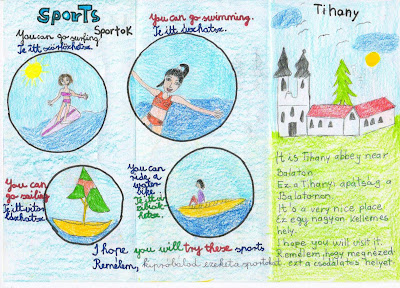 Sports
Sportok
You can go surfing.
Te itt szörfözhetsz.
You can go swimming.
Te itt úszhatsz.
You can
go sailing
Te itt vitor
lázhatsz.
You can
ride a
water
bike.
Te itt vízi
hetsz.
I hope you will try these sports
Remélem, kipróbálod ezeket a sportokat.
Tihany
It is Tihany abbey near
Balaton
Ez a Tihanyi apátság a
Balatonon.
It is a very nice place
Ez egy nagyon kellemes
hely.
I hope you will visit it.
Remélem, hogy megnézed
ezt a csodálatos helyet.